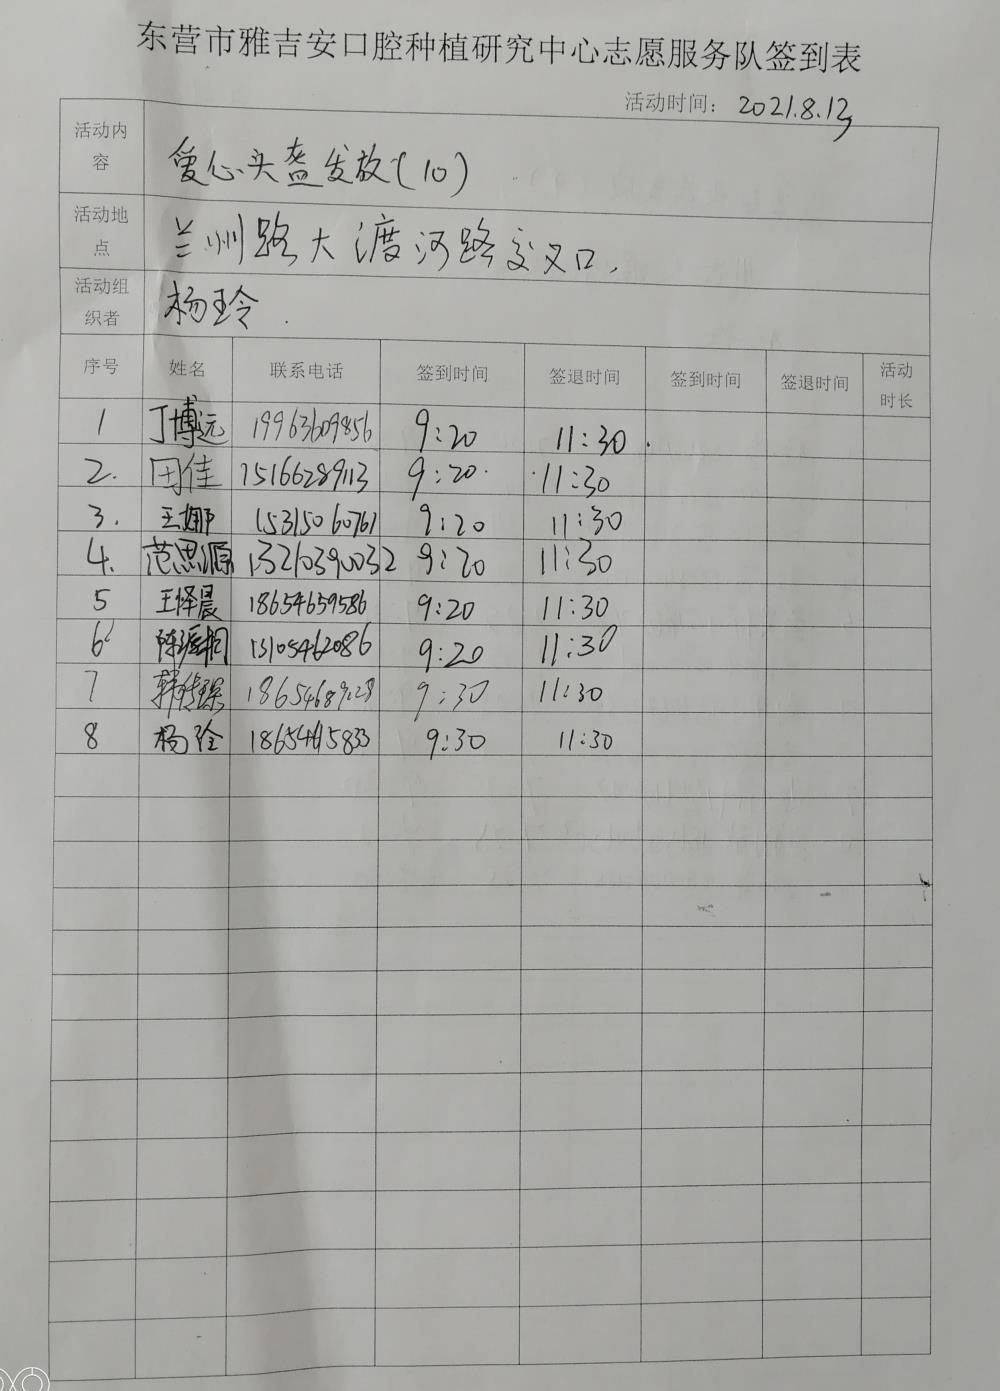 东营市雅吉安口腔种植研究中心志愿服务队签到表
活动时间： 2021.8.13
活动内容 爱心头盔发放（10）
活动地点 兰州路大渡河路交叉口.
活动组织者 杨玲
序号 姓名 联系电话 签到时间 签退时间 签到时间 签退时间 活动时长
1 丁博远 19963609856 9:20 11:30
2. 田佳 15166289113 9:20 11:30
3. 王娜 15315060761 9:20 11:30
4. 范思源 13210390032 9:20 11:30
5 王怿晨 18654659586 9:20 11:30
6 13105462086 9:20 11:30
7 9:30 11:30
8 杨玲 18654615833 9:30 11:30